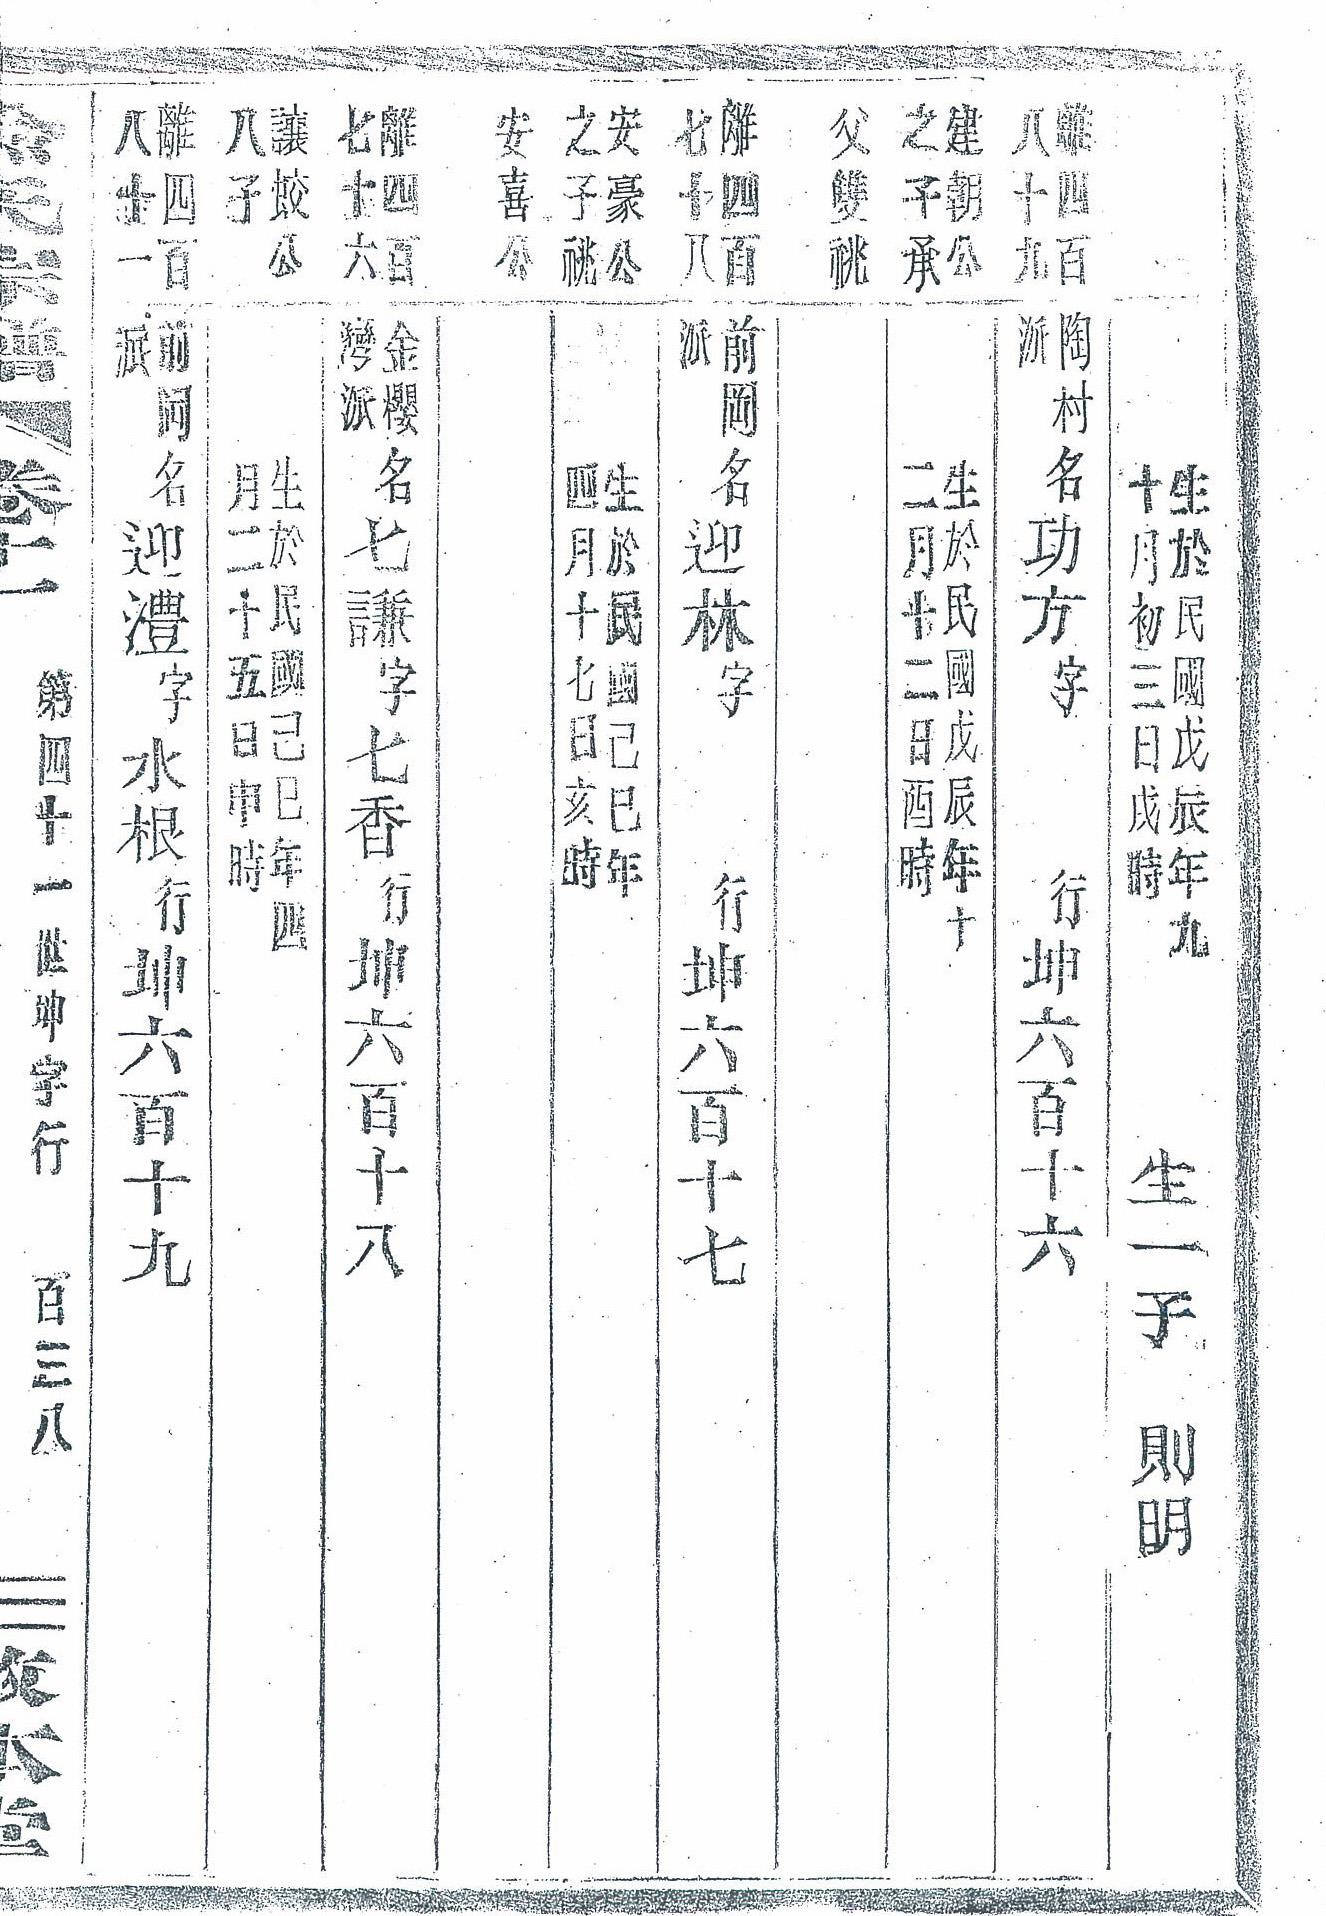 生於民國戊辰年九
十月初三日戌時
生一子 則明
離四百
八十九
陶村
派
名功方字 行坤六百十六
建朝公
之子承
生於民國戊辰年十
二月十二日酉時
父雙祧
離四百
七十八
前岡
派
名迎林字 行坤六百十七
安豪公
之子祧
生於民國己巳年
四月十七日亥時
安喜公
離四百
七十六
金櫻
灣派
名七謙字七香行坤六百十八
讓蛟公
八子
生於民國己巳年四
月二十五日申時
離四百
八十一
前岡
派
名迎澧字水根行坤六百十九
氏宗譜 卷十一 第四十一世坤字行 百三八 敦本堂